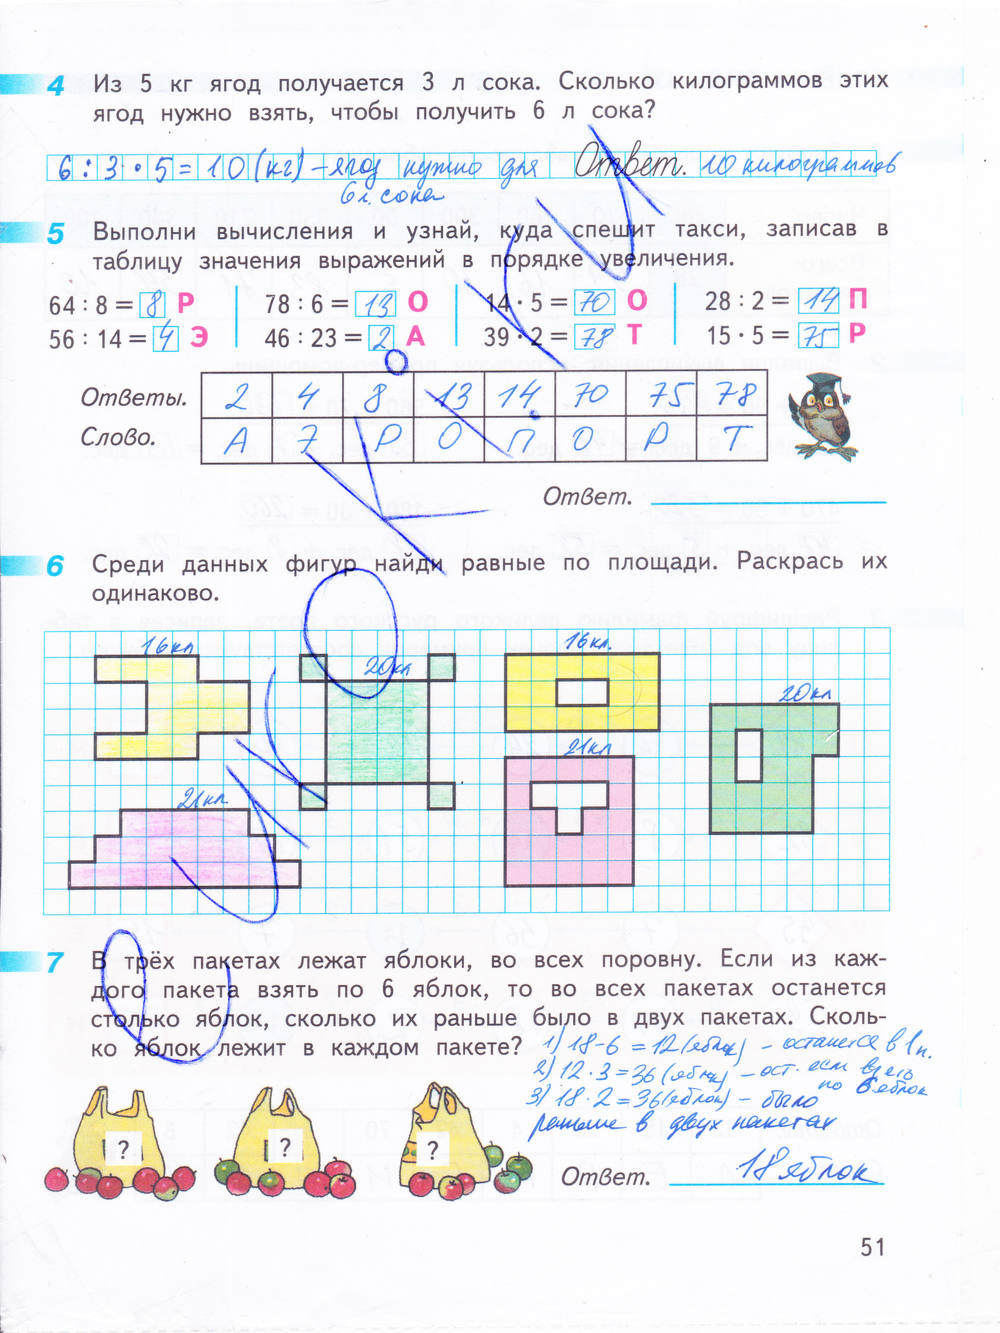 4 Из 5 кг ягод получается 3 л сока. Сколько килограммов этих
ягод нужно взять, чтобы получить 6 л сока?
6 : 3 · 5 = 10 (кг) – ягод нужно для Ответ. 10 килограммов
6 л. сока
5 Выполни вычисления и узнай, куда спешит такси, записав в
таблицу значения выражений в порядке увеличения.
64 : 8 = 8 Р 78 : 6 = 13 О 14 · 5 = 70 О 28 : 2 = 14 П
56 : 14 = 4 Э 46 : 23 = 2 А 39 · 2 = 78 Т 15 · 5 = 75 Р
Ответы. 2 4 8 13 14 70 75 78
Слово. А Э Р О П О Р Т
Ответ.
6 Среди данных фигур найди равные по площади. Раскрась их
одинаково.
16 кл 20 кл 16 кл. 20 кл
21 кл. 21 кл
7 В трёх пакетах лежат яблоки, во всех поровну. Если из каж-
дого пакета взять по 6 яблок, то во всех пакетах останется
столько яблок, сколько их раньше было в двух пакетах. Сколь-
ко яблок лежит в каждом пакете?
1) 18 - 6 = 12 (яблок) – останется в 1 п.
2) 12 · 3 = 36 (яблок) – ост. если взять
по 6 яблок
3) 18 · 2 = 36 (яблок) – было
раньше в двух пакетах
? ? ?
Ответ. 18 яблок
51